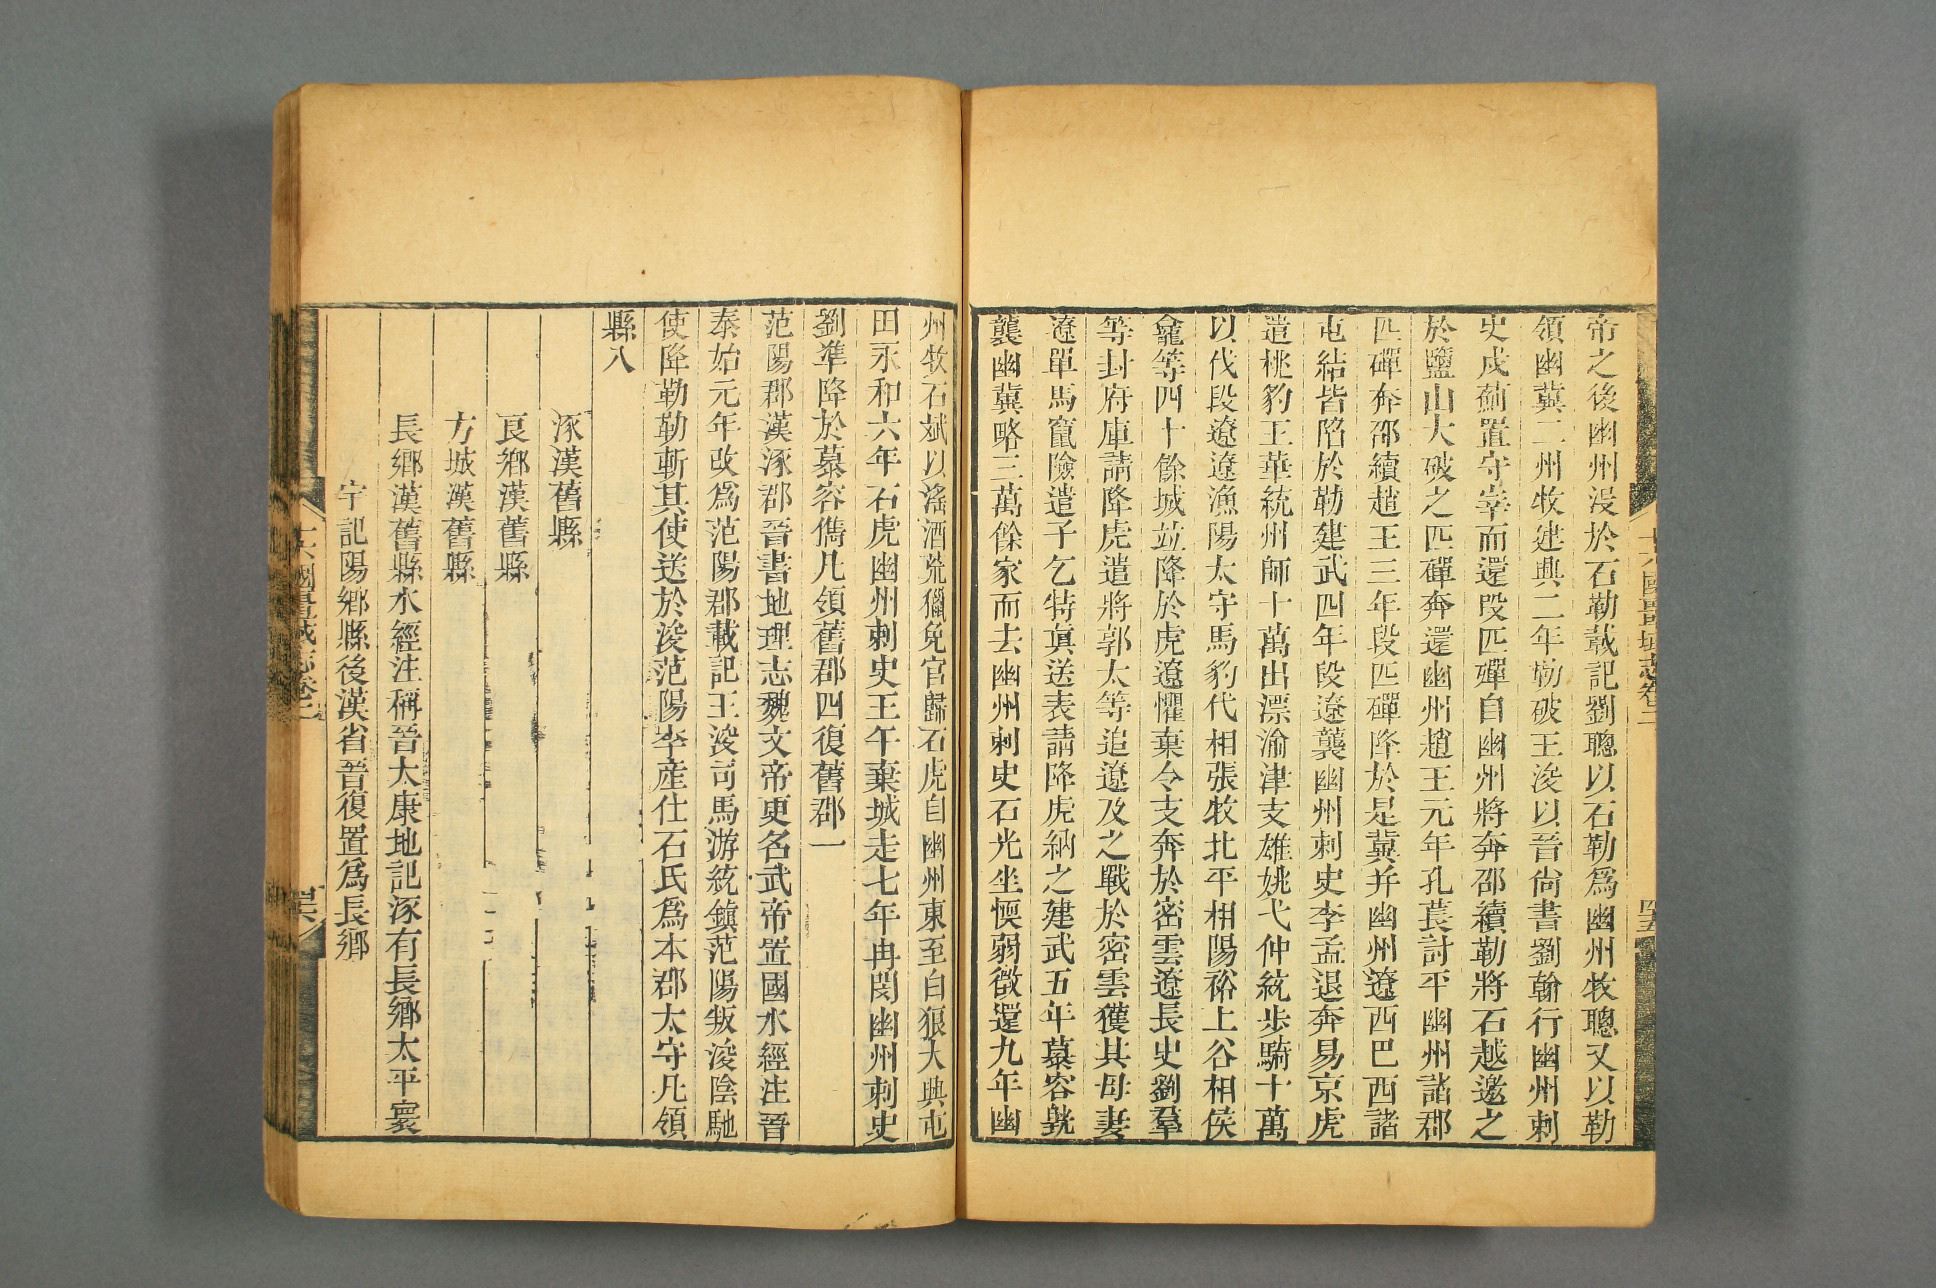 帝之後幽州没於石勒載記劉聰以石勒爲幽州牧聰又以勒
領幽冀二州牧建興二年勒破王浚以晉尙書劉翰行幽州刺
史戍薊置守宰而還段匹磾自幽州將奔邵續勒將石越邀之
於鹽山大破之匹磾奔還幽州趙王元年孔萇討平幽州諸郡
匹磾奔邵續趙王三年段匹磾降於是冀并幽州遼西巴西諸
屯結皆陷於勒建武四年段遼襲幽州刺史李孟退奔易京虎
遣桃豹王華統州師十萬出漂渝津支雄姚弋仲統步騎十萬
以伐段遼遼漁陽太守馬豹代相張牧北平相陽裕上谷相侯
龕等四十餘城竝降於虎遼懼棄令支奔於密雲遼長史劉羣
等封府庫請降虎遣將郭太等追遼及之戰於密雲獲其母妻
遼單馬竄險遣子乞特眞送表請降虎納之建武五年慕容皝
襲幽冀略三萬餘家而去幽州刺史石光坐愞弱徵還九年幽
州牧石斌以淫酒荒獵免官歸石虎自幽州東至白狼大興屯
田永和六年石虎幽州刺史王午棄城走七年冉閔幽州刺史
劉準降於慕容儁凡領舊郡四復舊郡一
范陽郡漢涿郡晉書地理志魏文帝更名武帝置國水經注晉
泰始元年改爲范陽郡載記王浚司馬游統鎮范陽叛浚陰馳
使降勒勒斬其使送於浚范陽李産仕石氏爲本郡太守凡領
縣八
涿漢舊縣
良鄉漢舊縣
方城漢舊縣
長鄉漢舊縣水經注稱晉太康地記涿有長鄉太平寰
宇記陽鄉縣後漢省晉復置爲長鄉
十六國疆域志卷二
四五
十六國疆域志卷二